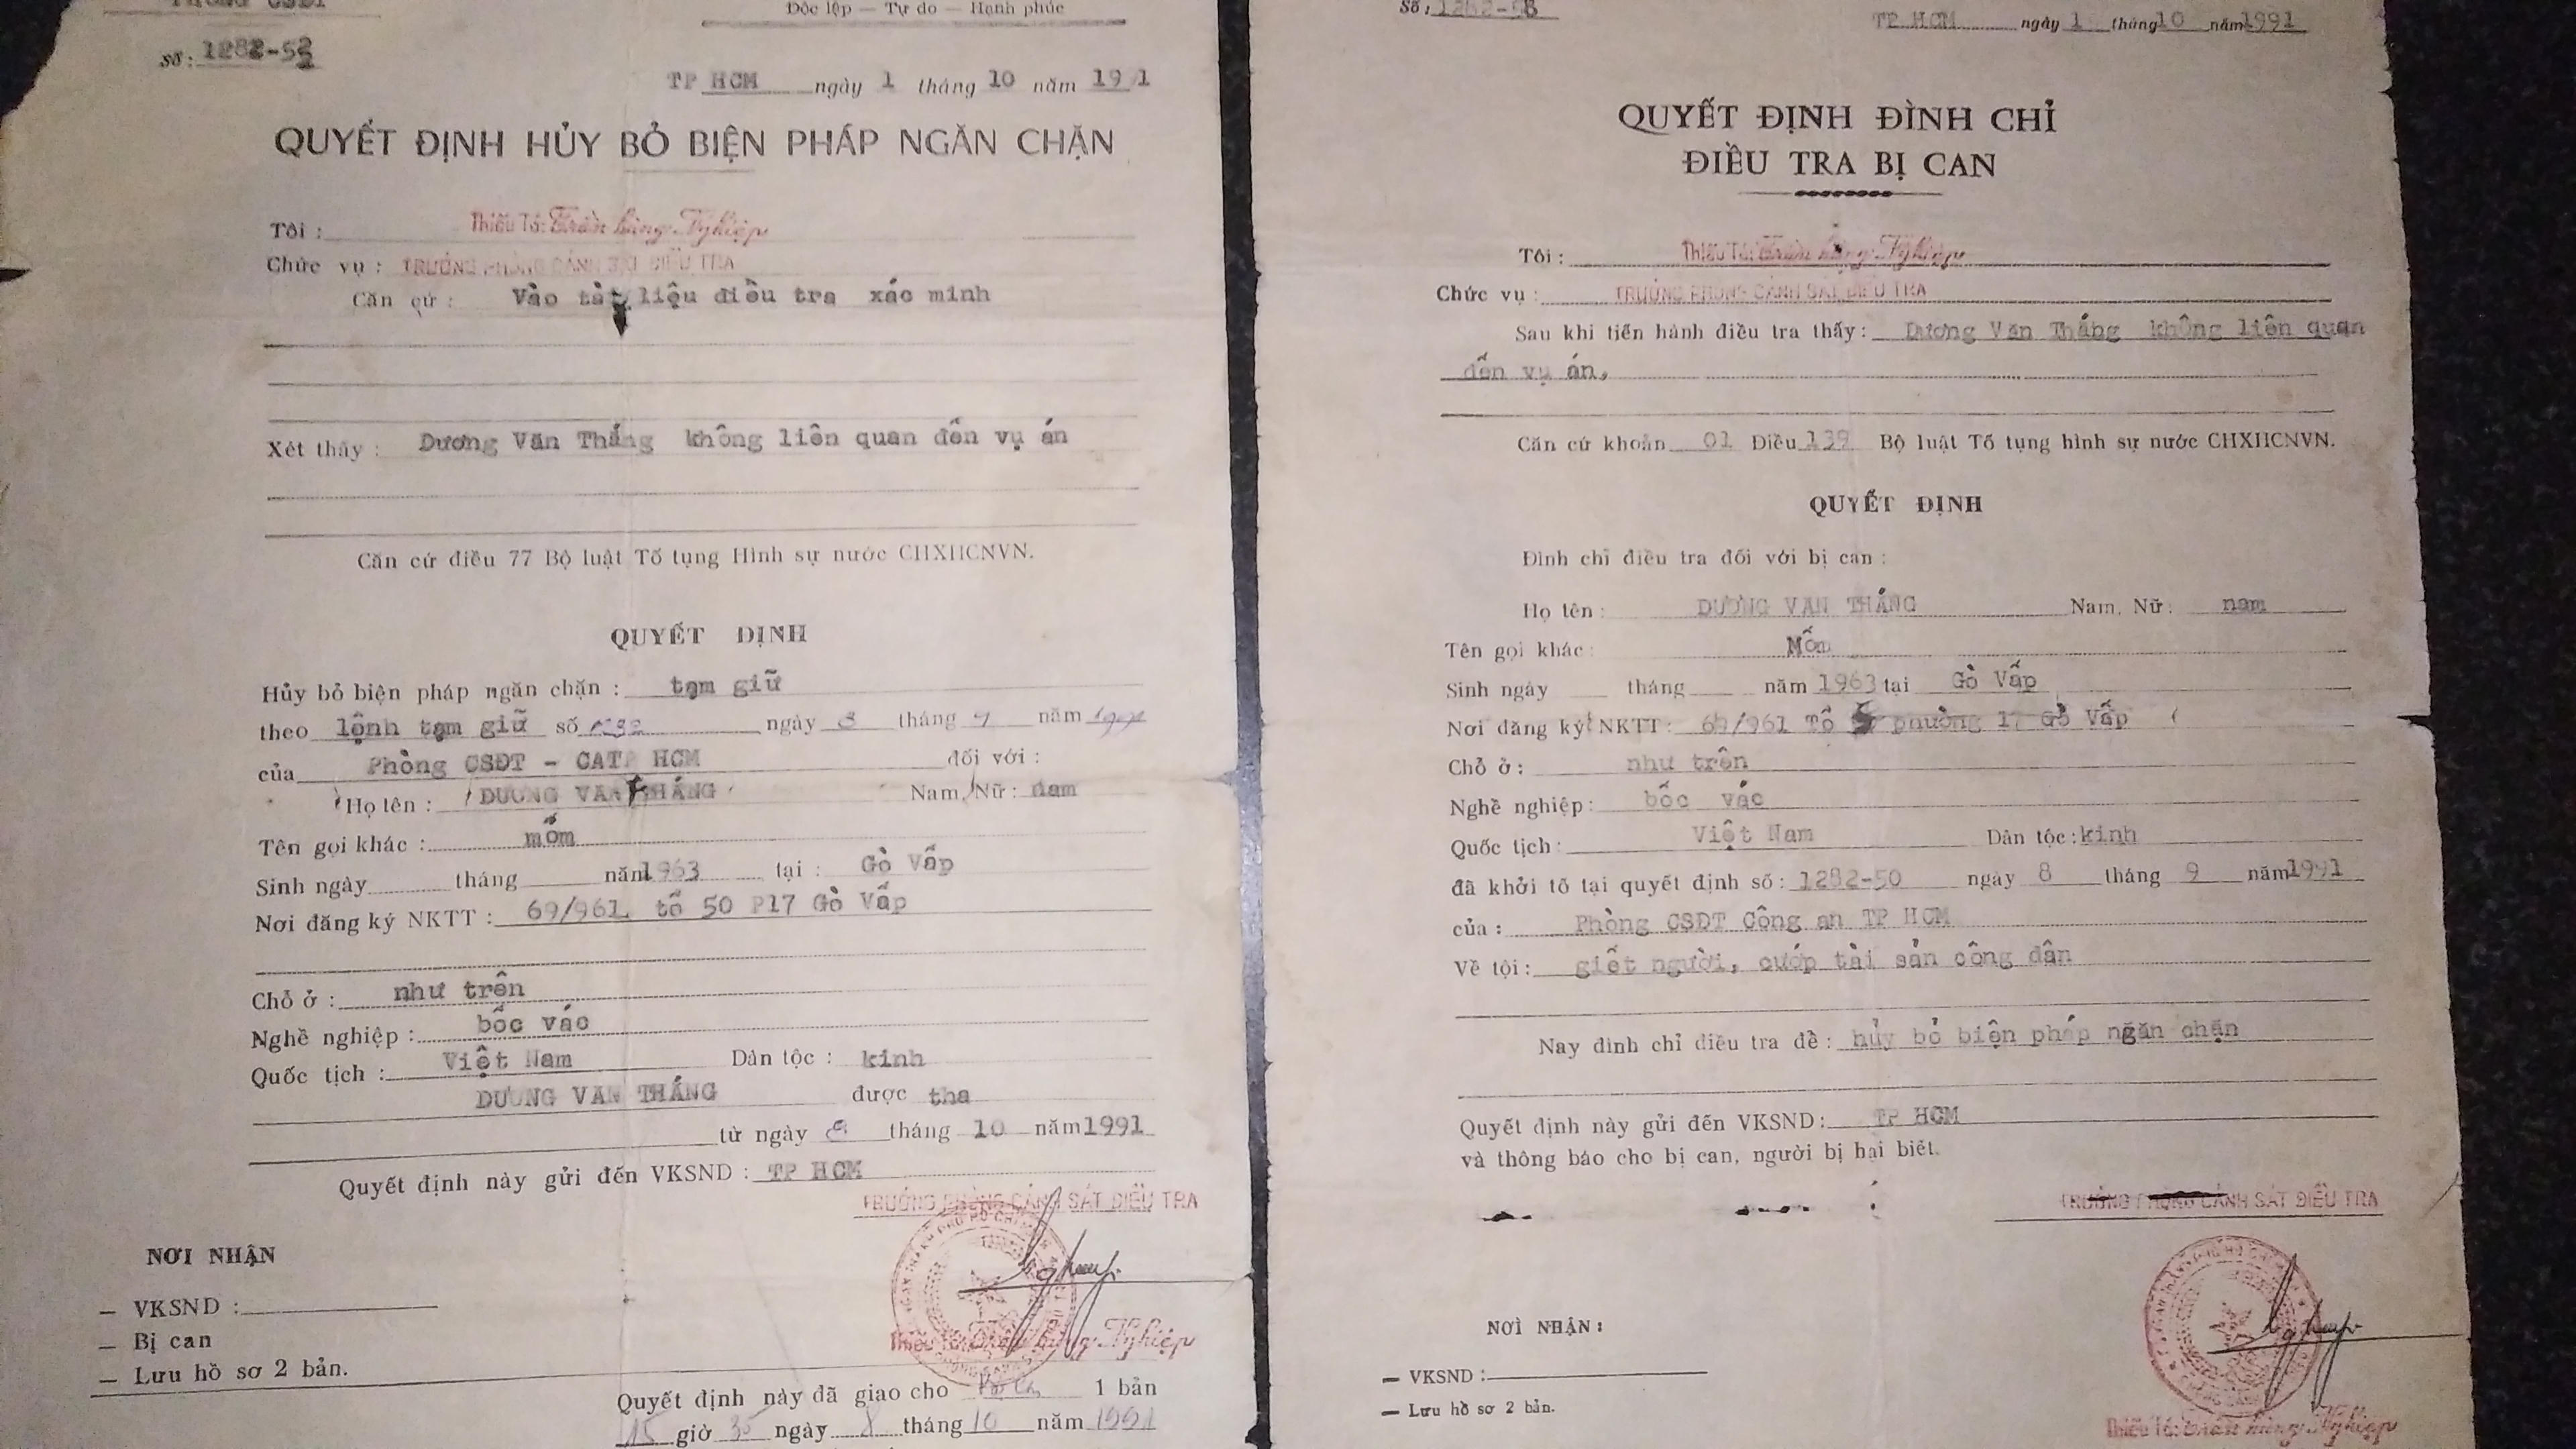 Độc lập — Tự do — Hạnh phúc
Số: 1282-52
TP HCM ngày 1 tháng 10 năm 19 1
QUYẾT ĐỊNH HỦY BỎ BIỆN PHÁP NGĂN CHẶN
Tôi : Thiếu Tá: Trần hùng Nghiệp
Chức vụ : TRƯỞNG PHÒNG CẢNH SÁT ĐIỀU TRA
Căn cứ : Vào tài liệu điều tra xác minh
Xét thấy : Dương Văn Thắng không liên quan đến vụ án
Căn cứ điều 77 Bộ luật Tố tụng Hình sự nước CHXHCNVN.
QUYẾT ĐỊNH
Hủy bỏ biện pháp ngăn chặn : tạm giữ
theo lệnh tạm giữ số ngày 8 tháng 9 năm 1991
của Phòng CSĐT - CATP HCM đối với :
Họ tên : DƯƠNG VĂN THẮNG Nam, Nữ : nam
Tên gọi khác : mốm
Sinh ngày tháng năm 1963 tại : Gò Vấp
Nơi đăng ký NKTT : 69/961, tổ 50 P17 Gò Vấp
Chỗ ở : như trên
Nghề nghiệp : bốc vác
Quốc tịch : Việt Nam Dân tộc : kinh
DƯƠNG VĂN THẮNG được tha
từ ngày 8 tháng 10 năm 1991
Quyết định này gửi đến VKSND : TP HCM
TRƯỞNG PHÒNG CẢNH SÁT ĐIỀU TRA
NƠI NHẬN
— VKSND :
— Bị can
— Lưu hồ sơ 2 bản.
Thiếu Tá: Trần hùng Nghiệp
Quyết định này đã giao cho 1 bản
15 giờ 35 ngày 8 tháng 10 năm 1991
Số : 1282-53
TP HCM ngày 1 tháng 10 năm 1991
QUYẾT ĐỊNH ĐÌNH CHỈ
ĐIỀU TRA BỊ CAN
Tôi : Thiếu Tá: Trần hùng Nghiệp
Chức vụ : TRƯỞNG PHÒNG CẢNH SÁT ĐIỀU TRA
Sau khi tiến hành điều tra thấy : Dương Văn Thắng không liên quan
đến vụ án,
Căn cứ khoản 01 Điều 139 Bộ luật Tố tụng hình sự nước CHXHCNVN.
QUYẾT ĐỊNH
Đình chỉ điều tra đối với bị can :
Họ tên : DƯƠNG VĂN THẮNG Nam, Nữ : nam
Tên gọi khác : Mốm
Sinh ngày tháng năm 1963 tại Gò Vấp
Nơi đăng ký NKTT : 69/961 Tổ phường 17 Gò Vấp
Chỗ ở : như trên
Nghề nghiệp : bốc vác
Quốc tịch : Việt Nam Dân tộc : kinh
đã khởi tố tại quyết định số : 1282-50 ngày 8 tháng 9 năm 1991
của : Phòng CSĐT Công an TP HCM
Về tội : giết người, cướp tài sản công dân
Nay đình chỉ điều tra để : hủy bỏ biện pháp ngăn chặn
Quyết định này gửi đến VKSND : TP HCM
và thông báo cho bị can, người bị hại biết.
TRƯỞNG PHÒNG CẢNH SÁT ĐIỀU TRA
NƠI NHẬN :
— VKSND :
— Lưu hồ sơ 2 bản.
Thiếu Tá: Trần hùng Nghiệp